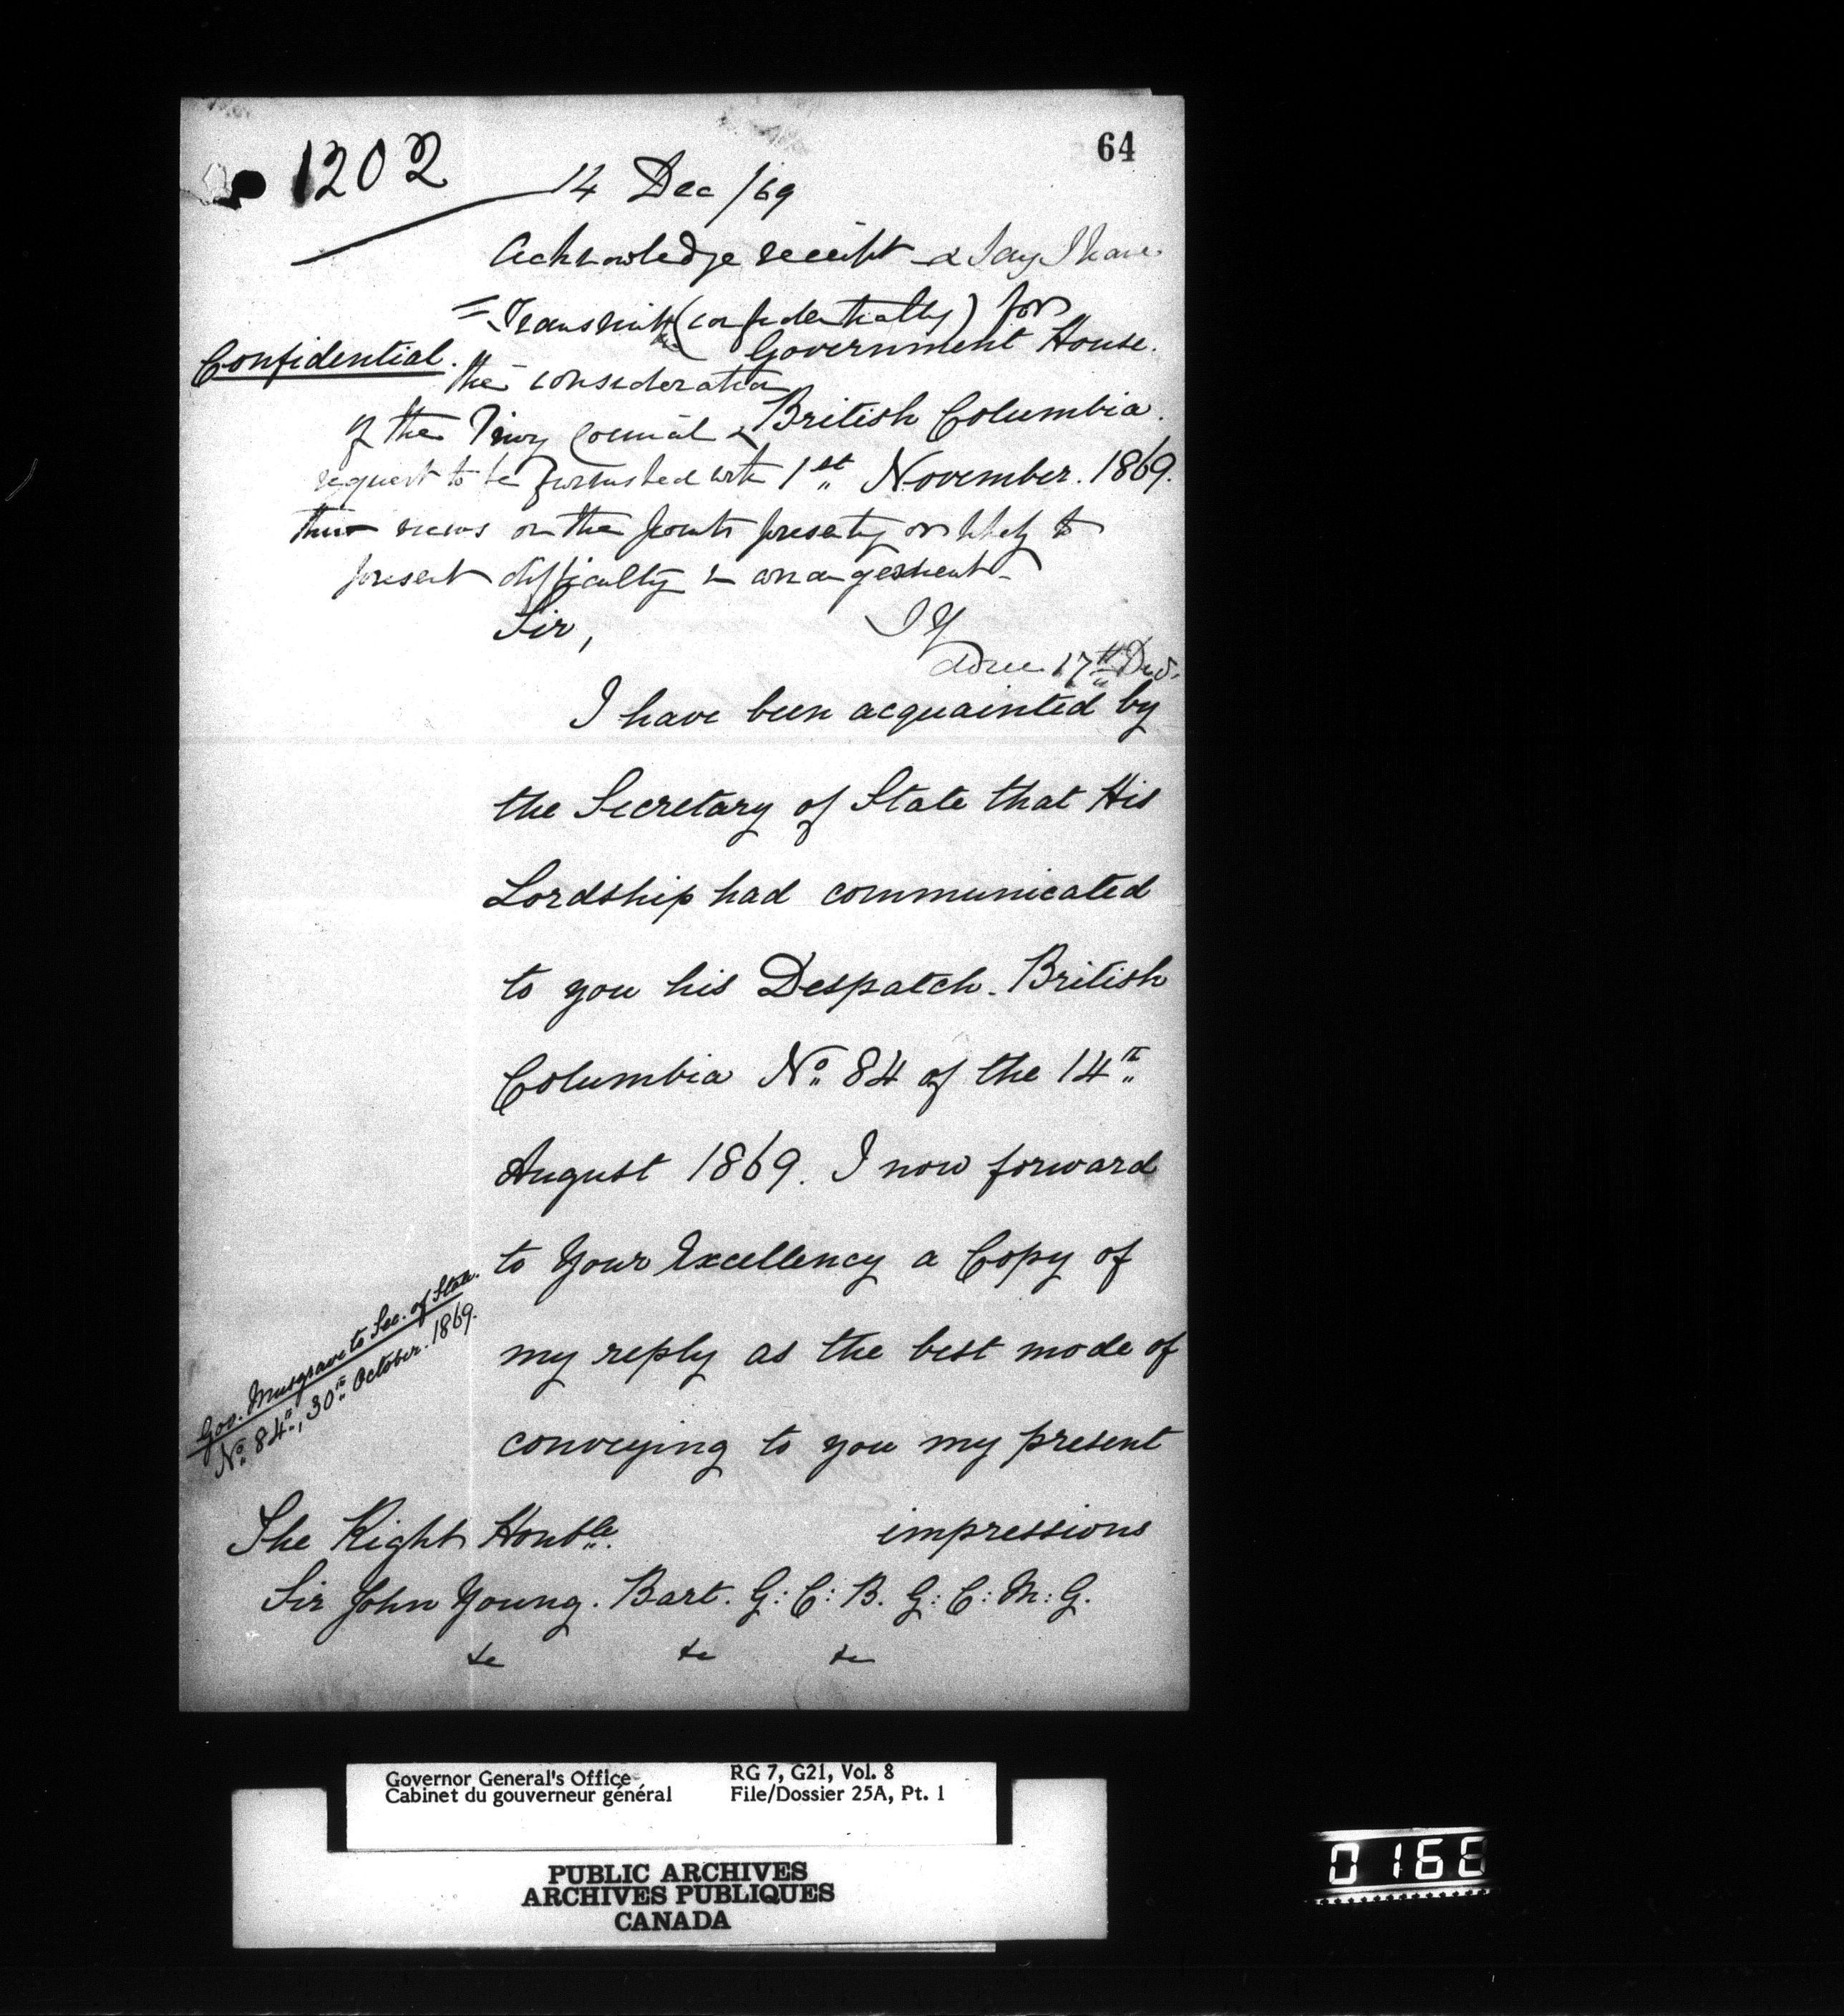 64
1202
14 Dec /69
Acknowledge receipt & Say I have
Transmitted (confidentially) for
Government House.
Confidential.
the consideration
British Columbia.
of the Privy Council &
request to be furnished with
1st November. 1869.
their views on the points presenting or likely to
present difficulty in arrangement
Sir,
JY
done 17th Dec.
I have been acquainted by
the Secretary of State that His
Lordship had communicated
to you his Despatch. British
Columbia No. 84 of the 14th
August 1869. I now forward
to Your Excellency a Copy of
my reply as the best mode of
conveying to you my present
impressions
Gov. Musgrave to Sec. of State.
No. 84, 30th October. 1869.
The Right Honble.
Sir John Young. Bart. G: C: B. G: C: M: G.
&c &c &c
Governor General's Office
Cabinet du gouverneur général
RG 7, G21, Vol. 8
File/Dossier 25A, Pt. 1
PUBLIC ARCHIVES
ARCHIVES PUBLIQUES
CANADA